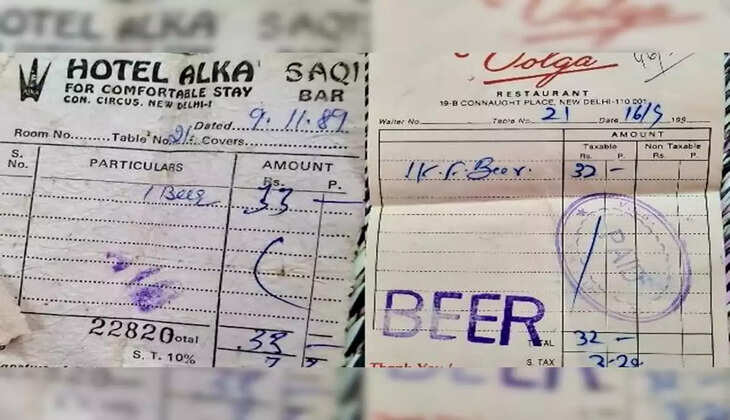 HOTEL ALKA SAQI
FOR COMFORTABLE STAY BAR
CON. CIRCUS, NEW DELHI-1
Dated 9.11.89
Room No. Table No. 21 Covers
S. No. PARTICULARS AMOUNT
Rs. P.
1 Beer 33 —
22820 Total 33 —
S. T. 10%
Volga
RESTAURANT
19-B CONNAUGHT PLACE, NEW DELHI-110 001
Waiter No. Table No. 21 Date 16/9 199
AMOUNT
Taxable Non Taxable
Rs. P. Rs. P.
1 K.F. Beer. 32 —
PAID
BEER
TOTAL 32 —
S. TAX
Thank You!